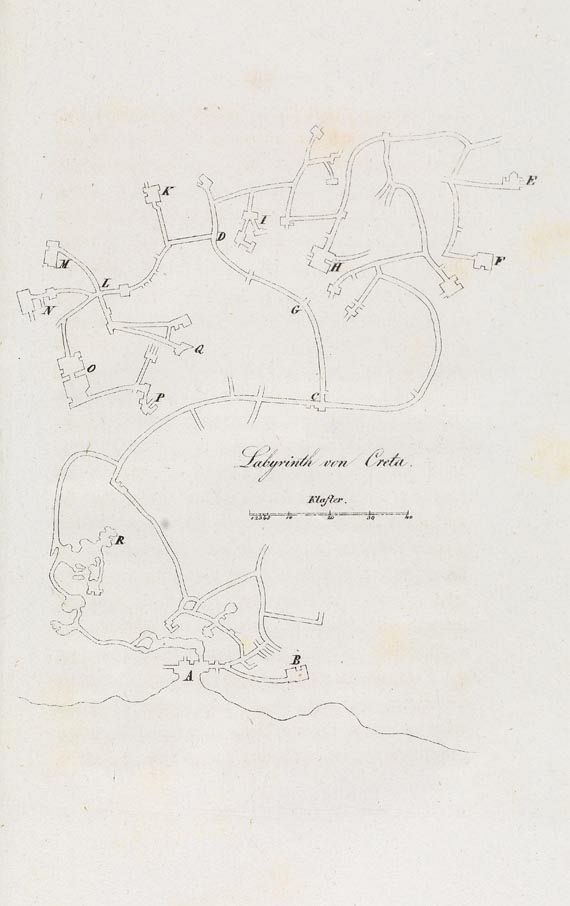 K
E
I
D
M
H
F
L
N
G
Q
O
P
C
Labyrinth von Creta.
Klafter.
1 2 3 4 5 10 20 30 40
R
B
A